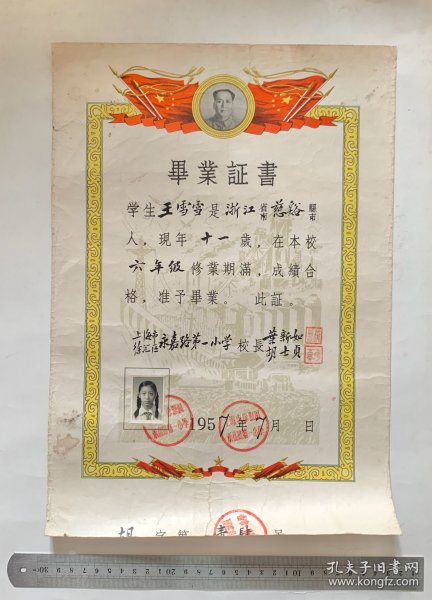 畢業証書
学生王雪雪是浙江省市慈谿縣市
人，現年十一歲，在本校
六年級修業期滿，成績合
格，准予畢業。此証。
上海市徐汇区永嘉路第一小学校長葉新如胡士貞
1957年7月 日
字第 号
孔夫子旧书网
www.kongfz.com